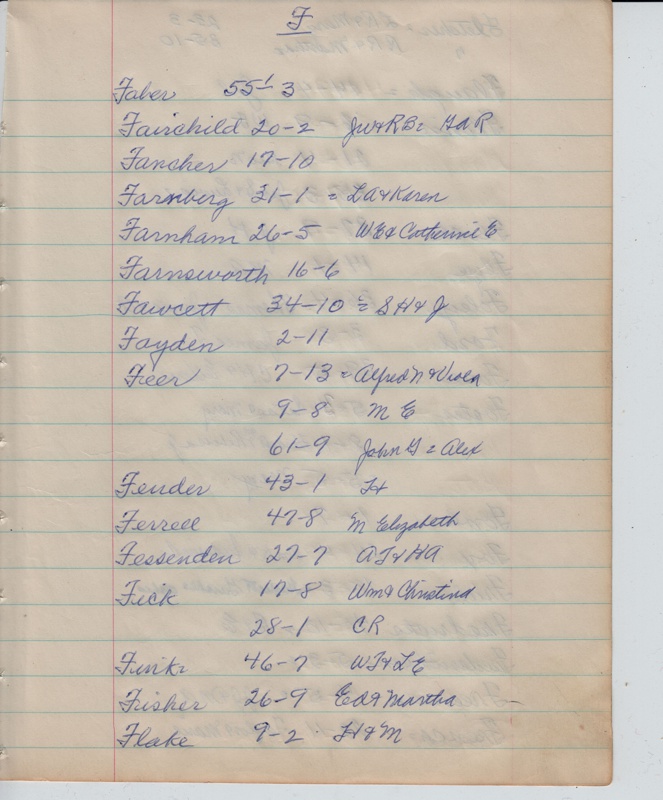 F
Faber 55-3
Fairchild 20-2 JW&RB=
Fancher 17-10
Farnberg 31-1 = LA&Karen
Farnham 26-5 WE& Catherine E
Farnsworth 16-6
Fawcett 34-10 = SH& J
Fayden 2-11
Feer 7-13 = Alfred N & Viola
9-8 M E
61-9 John G = Alex
Fender 43-1
Ferrell 47-8 M Elizabeth
Fessenden 27-7 AT&HA
Fick 17-8 Wm& Christina
28-1 CR
Funk 46-7
Fisher 26-9 Ed & Martha
Flake 9-2 H&M